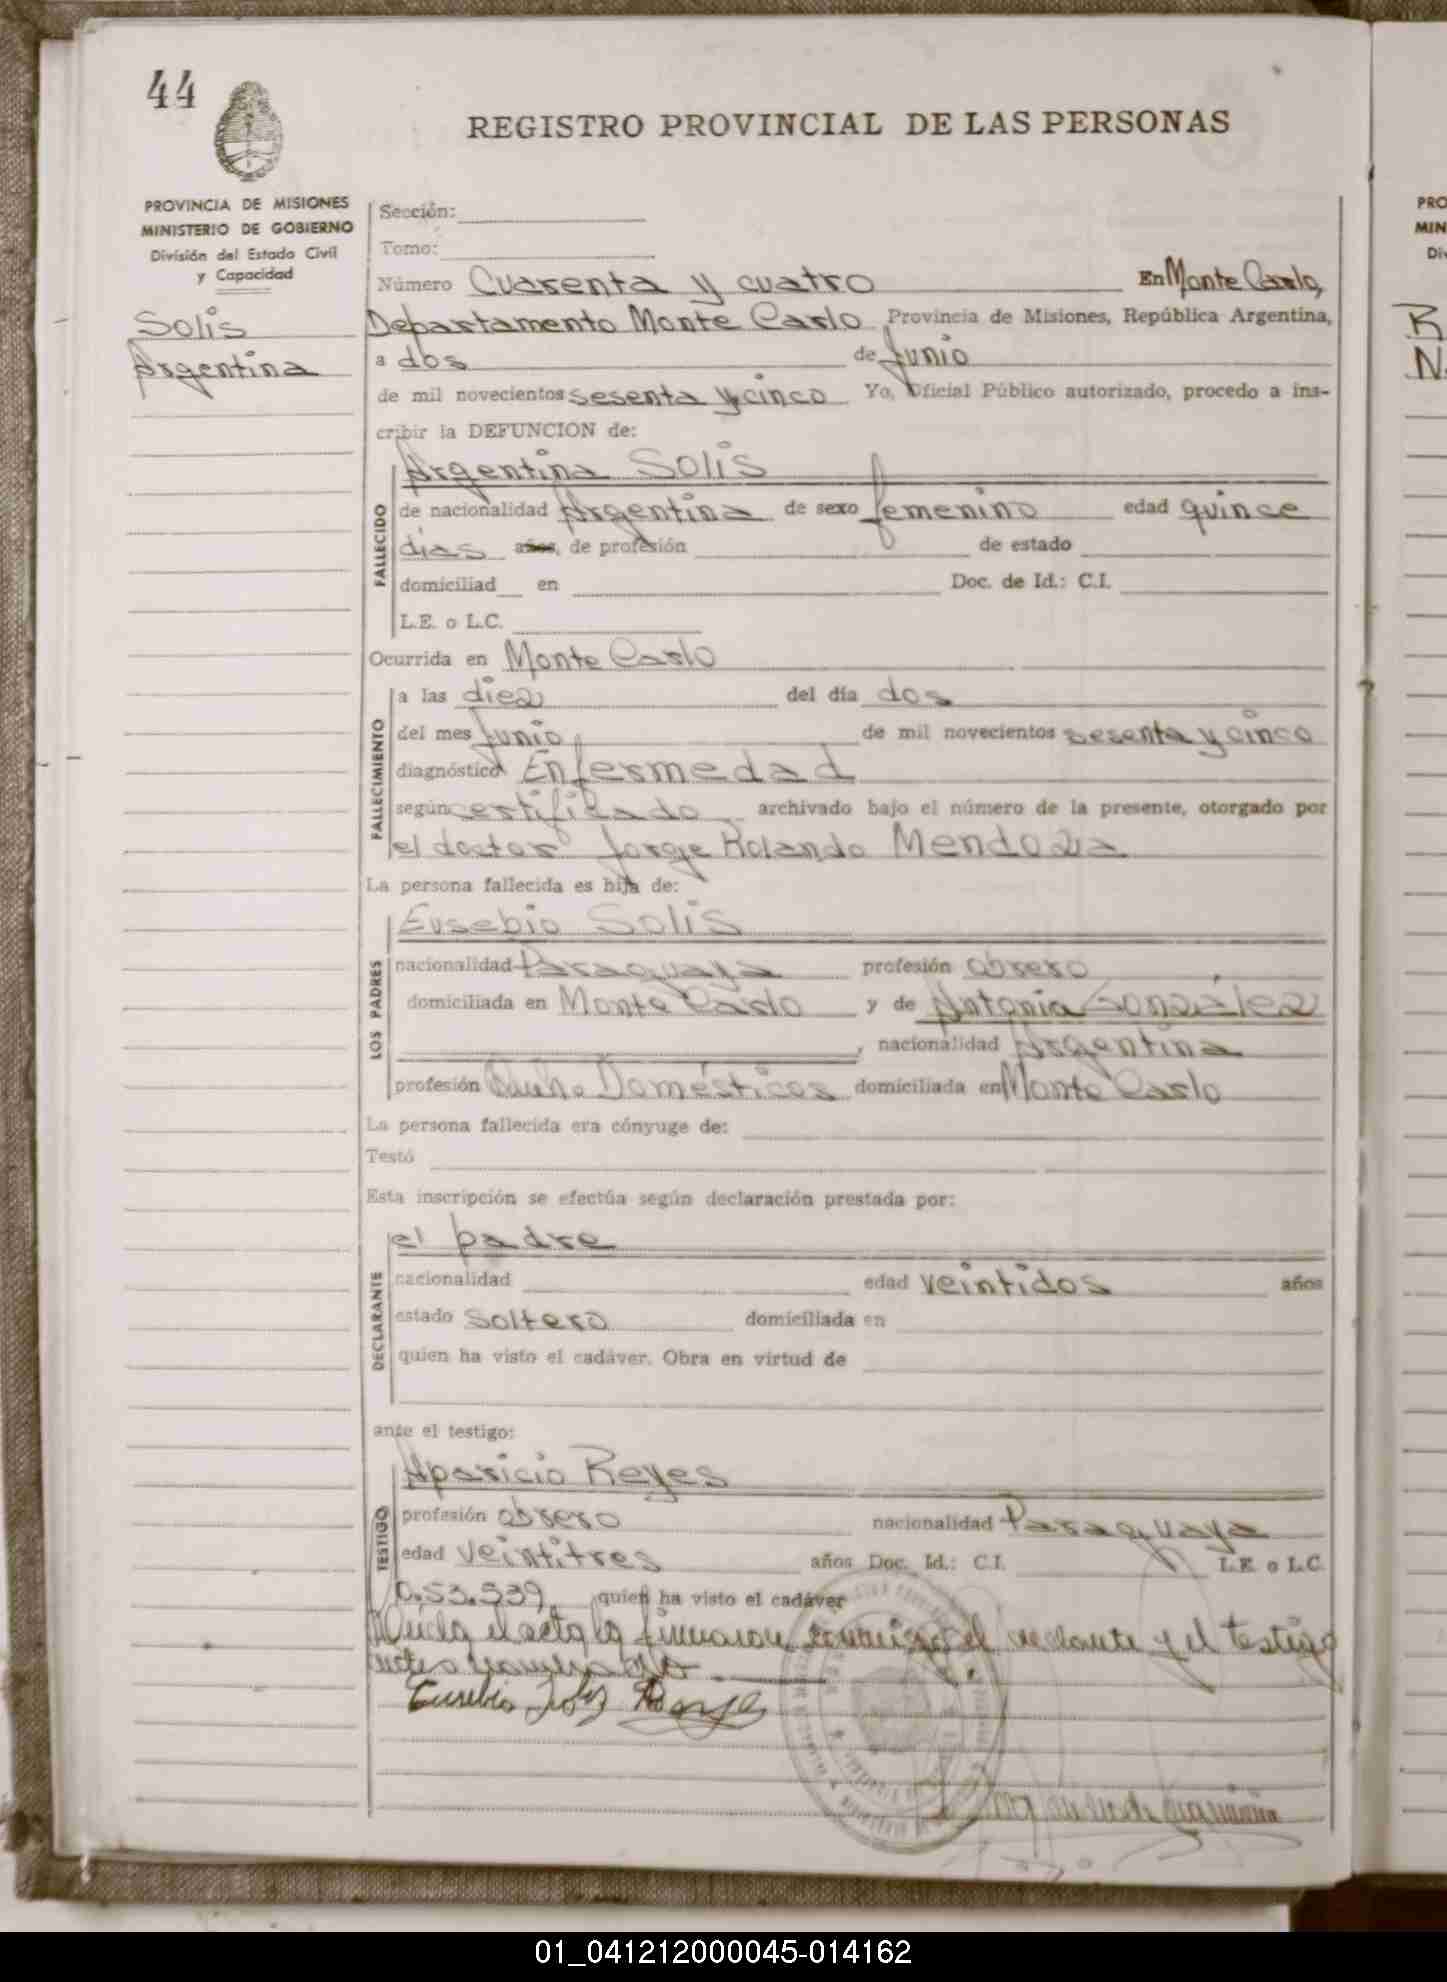 44
REGISTRO PROVINCIAL DE LAS PERSONAS
PROVINCIA DE MISIONES
MINISTERIO DE GOBIERNO
División del Estado Civil
y Capacidad
Solis
Argentina
Sección:
Tomo:
Número Cuarenta y cuatro En Monte Carlo,
Departamento Monte Carlo Provincia de Misiones, República Argentina,
a dos de Junio
de mil novecientos sesenta y cinco Yo, Oficial Público autorizado, procedo a ins-
cribir la DEFUNCION de:
FALLECIDO
Argentina Solis
de nacionalidad Argentina de sexo femenino edad quince
dias años, de profesión de estado
domiciliad en Doc. de Id.: C.I.
L.E. o L.C.
Ocurrida en Monte Carlo
FALLECIMIENTO
a las diez del día dos
del mes Junio de mil novecientos sesenta y cinco
diagnóstico Enfermedad
según certificado archivado bajo el número de la presente, otorgado por
el doctor Jorge Rolando Mendoza
La persona fallecida es hija de:
LOS PADRES
Eusebio Solis
nacionalidad Paraguaya profesión obrero
domiciliada en Monte Carlo y de Antonia González
, nacionalidad Argentina
profesión Domésticos domiciliada en Monte Carlo
La persona fallecida era cónyuge de:
Testó
Esta inscripción se efectúa según declaración prestada por:
DECLARANTE
el padre
nacionalidad edad veintidos años
estado soltero domiciliada en
quien ha visto el cadáver. Obra en virtud de
ante el testigo:
TESTIGO
Aparicio Reyes
profesión obrero nacionalidad Paraguaya
edad veintitres años Doc. Id.: C.I. L.E. o L.C.
0.53.539 quien ha visto el cadáver
el acta la firmaron conmigo el y el testigo
Eusebio
PRO
MIN
Div
R
N
01_041212000045-014162